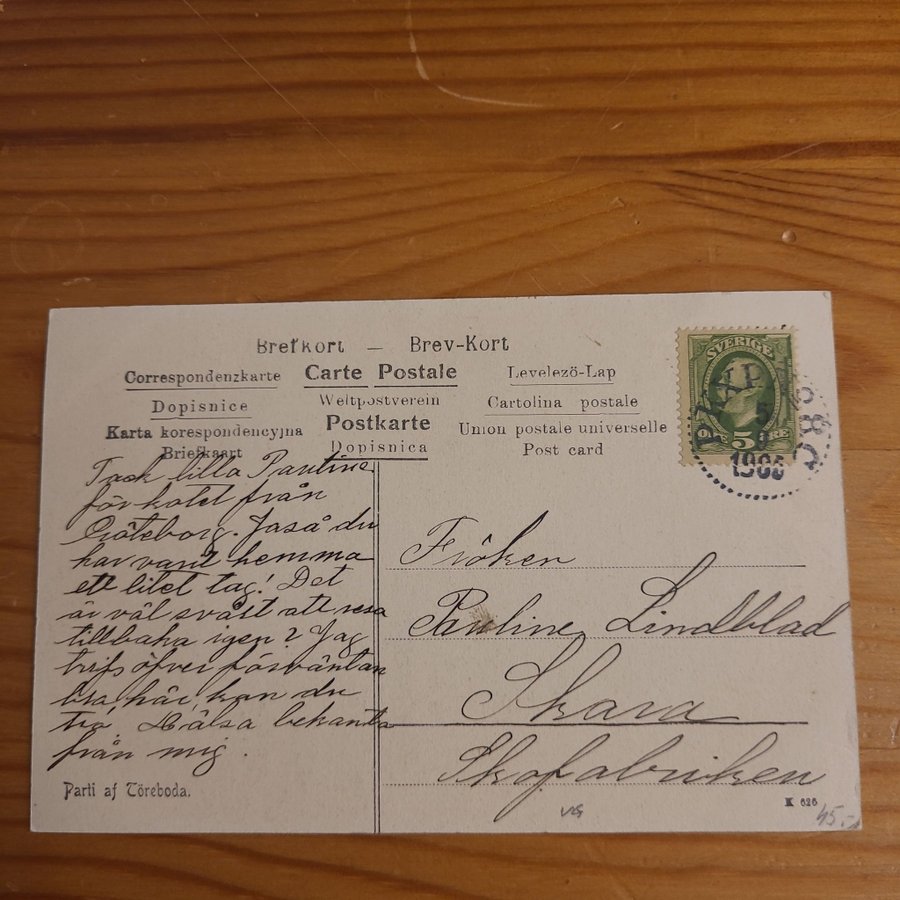 Brefkort — Brev-Kort
Correspondenzkarte Carte Postale Levelező-Lap
Dopisnice Weltpostverein Cartolina postale
Karta korespondencyjna Postkarte Union postale universelle
Briefkaart Dopisnica Post card
SVERIGE
5 ÖRE
PKXP
1905
Tack lilla Pauline
för kotet från
Göteborg. Jaså du
har varit hemma
ett litet tag! Det
är väl svårt att resa
tillbaka igen? Jag
trifs öfver förväntan
bra här, kan du
tro. Hälsa bekanta
från mig.
Fröken
Pauline Lindblad
Skara
Skofabriken
Parti af Töreboda.
K 626
VG
45.-